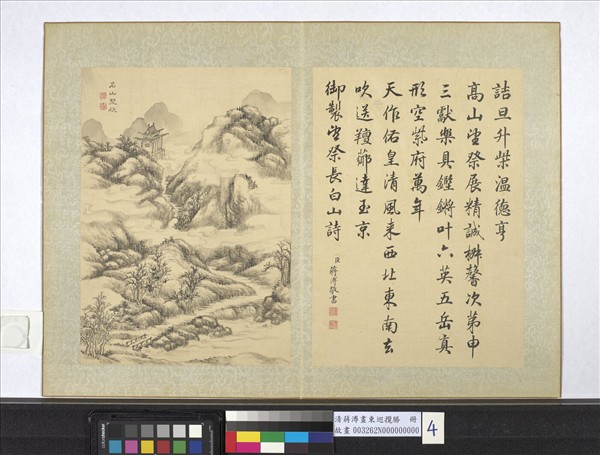 詰旦升柴溫德亨
高山望祭展精誠椒馨次第申
三獻樂具鏗鏘叶六英五岳真
形空紫府萬年
天作佑皇清風來西北東南去
吹送羶薌達玉京
御製望祭長白山詩
臣蔣溥敬書
名山望秩
清蔣溥畫東巡攬勝 冊
故畫 003262N000000000
4